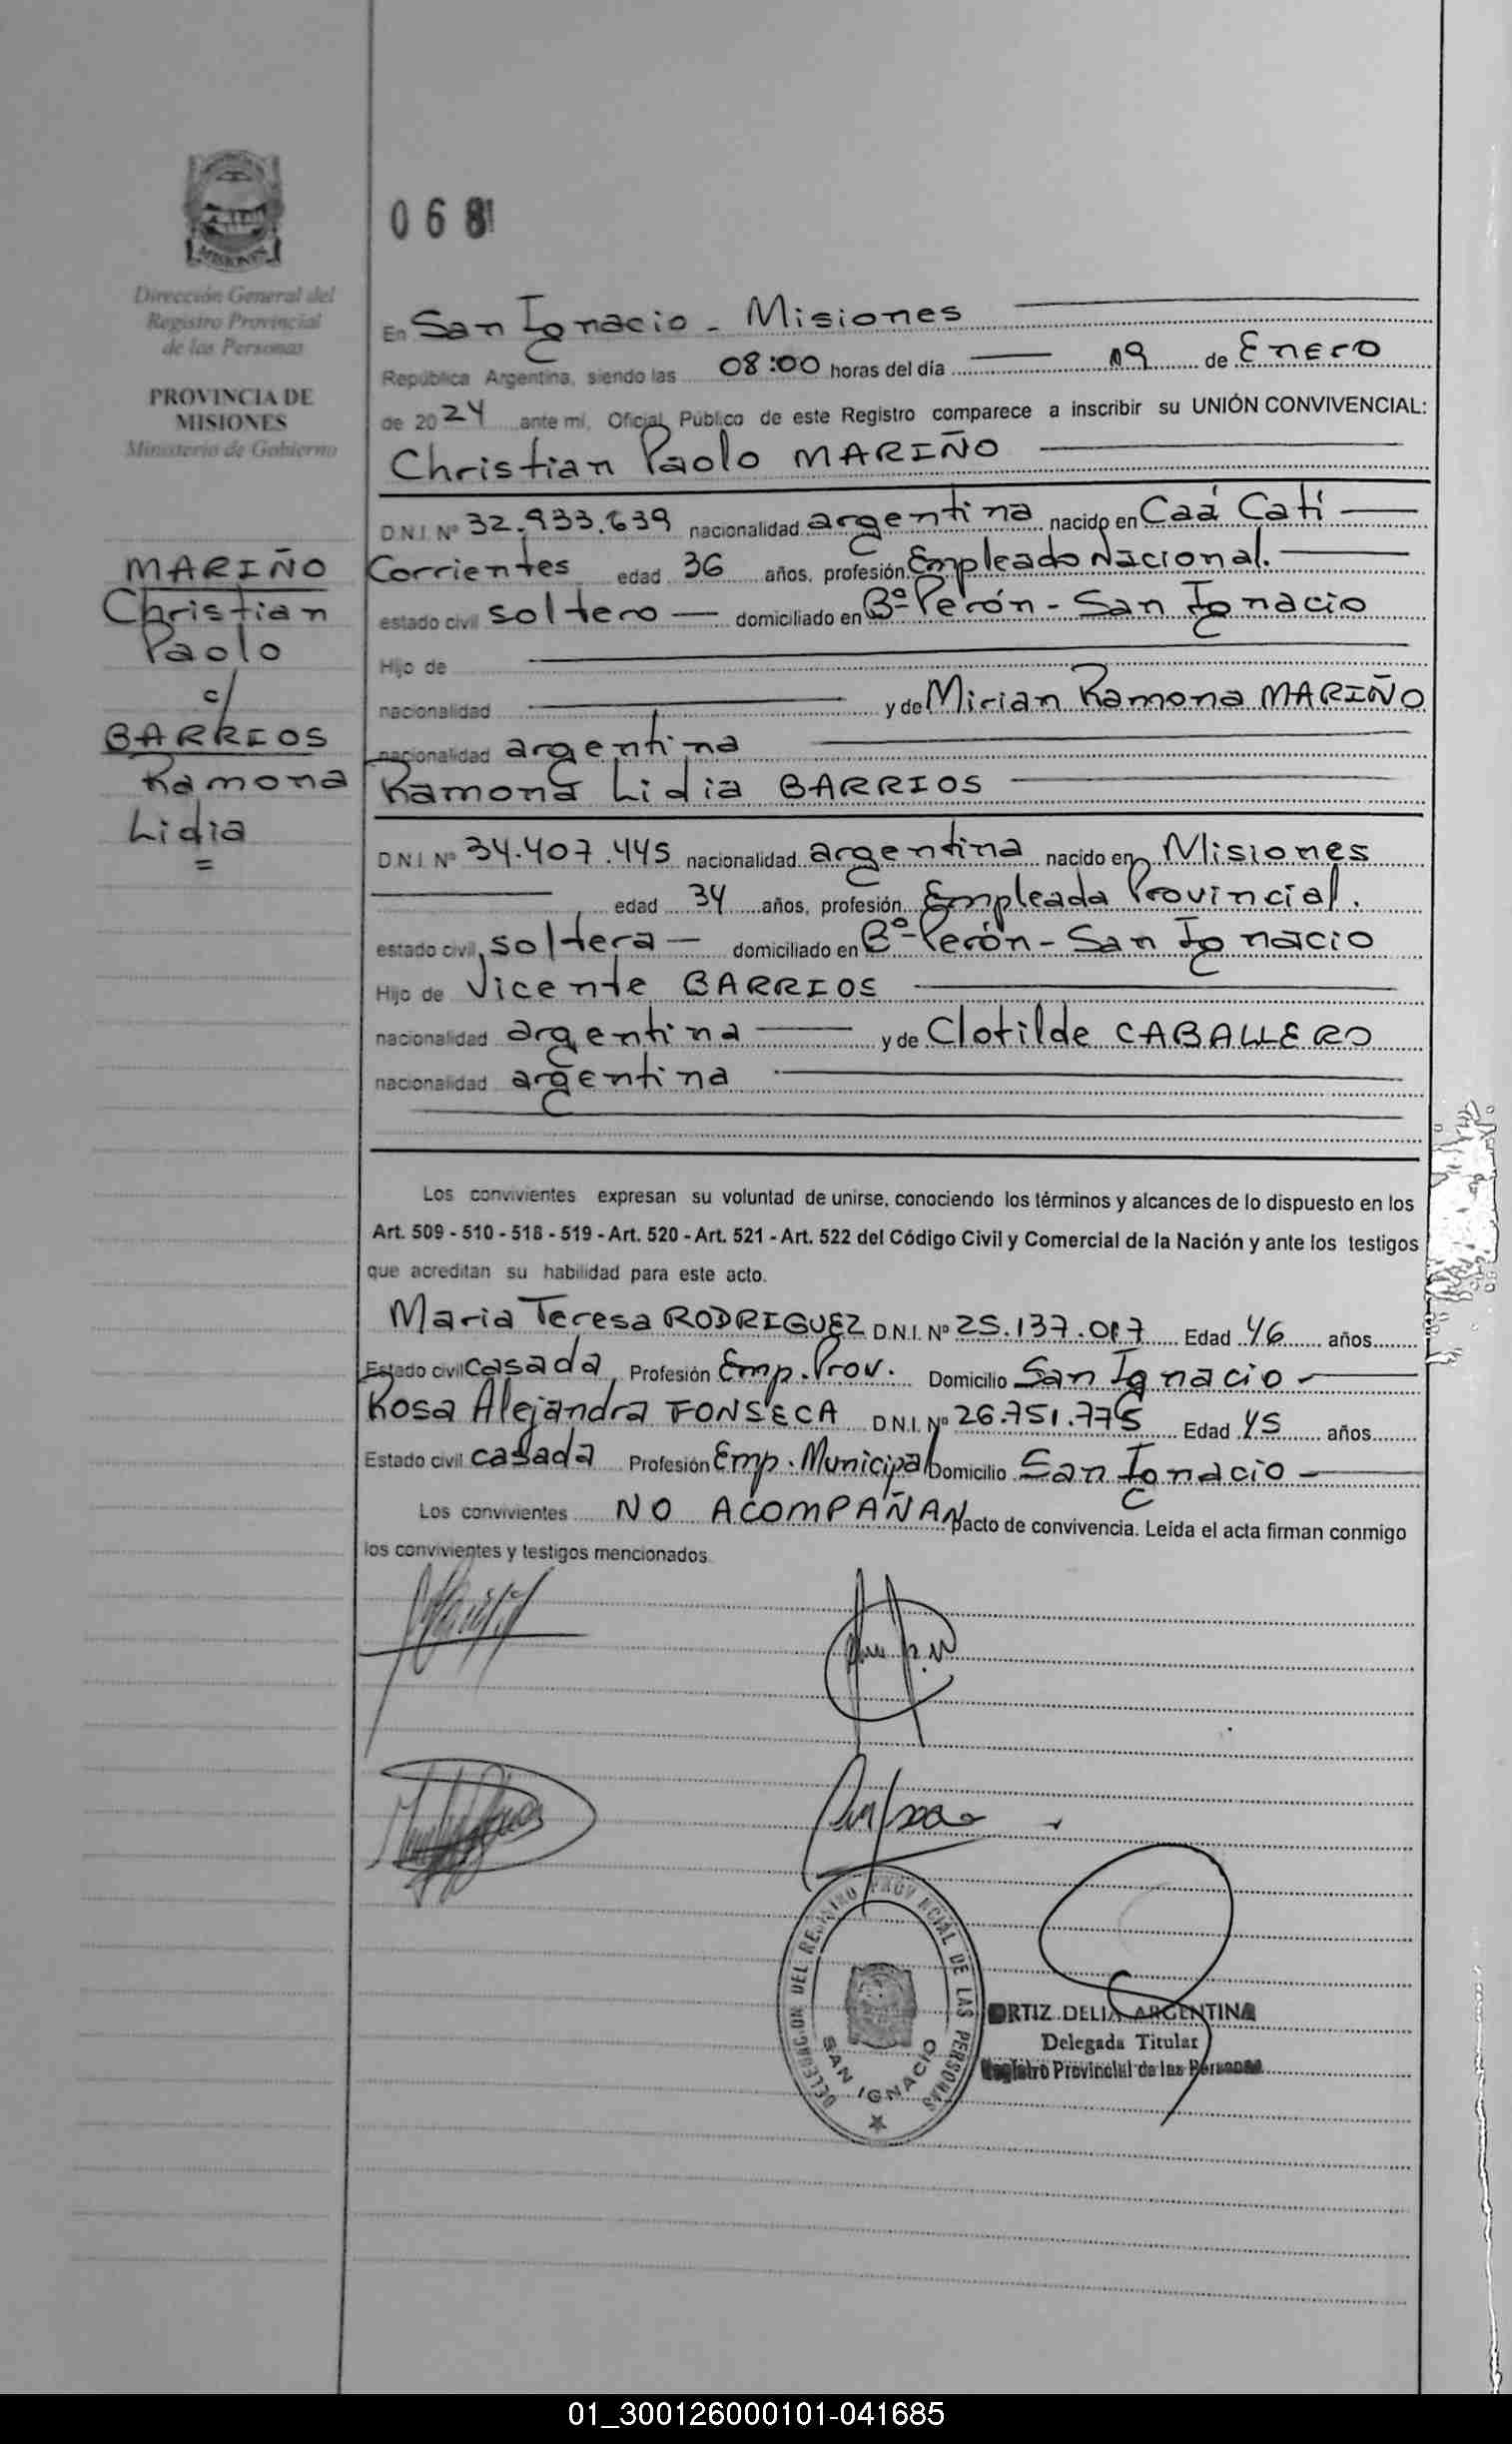 MISIONES
Dirección General del
Registro Provincial
de las Personas
PROVINCIA DE
MISIONES
Ministerio de Gobierno
MARIÑO
Christian
Paolo
c/
BARRIOS
Ramona
Lidia
=
068
En San Ignacio - Misiones
República Argentina, siendo las 08:00 horas del día 09 de Enero
de 2024 ante mi, Oficial Público de este Registro comparece a inscribir su UNIÓN CONVIVENCIAL:
Christian Paolo MARIÑO
D.N.I. Nº 32.933.639 nacionalidad argentina nacido en Caá Catí
Corrientes edad 36 años, profesión Empleado Nacional.
estado civil soltero domiciliado en Bº Perón - San Ignacio
Hijo de
nacionalidad y de Mirian Ramona MARIÑO
nacionalidad argentina
Ramona Lidia BARRIOS
D.N.I. Nº 34.407.445 nacionalidad argentina nacido en Misiones
edad 34 años, profesión Empleada Provincial.
estado civil soltera domiciliado en Bº Perón - San Ignacio
Hijo de Vicente BARRIOS
nacionalidad argentina y de Clotilde CABALLERO
nacionalidad argentina
Los convivientes expresan su voluntad de unirse, conociendo los términos y alcances de lo dispuesto en los
Art. 509 - 510 - 518 - 519 - Art. 520 - Art. 521 - Art. 522 del Código Civil y Comercial de la Nación y ante los testigos
que acreditan su habilidad para este acto.
Maria Teresa RODRIGUEZ D.N.I. Nº 25.137.017 Edad 46 años
Estado civil casada Profesión Emp. Prov. Domicilio San Ignacio
Rosa Alejandra FONSECA D.N.I. Nº 26.751.775 Edad 45 años
Estado civil casada Profesión Emp. Municipal Domicilio San Ignacio
Los convivientes NO ACOMPAÑAN pacto de convivencia. Leída el acta firman conmigo
los convivientes y testigos mencionados.
DELEGACION DEL REGISTRO PROVINCIAL DE LAS PERSONAS
SAN IGNACIO
ORTIZ DELIA ARGENTINA
Delegada Titular
Registro Provincial de las Personas
01_300126000101-041685